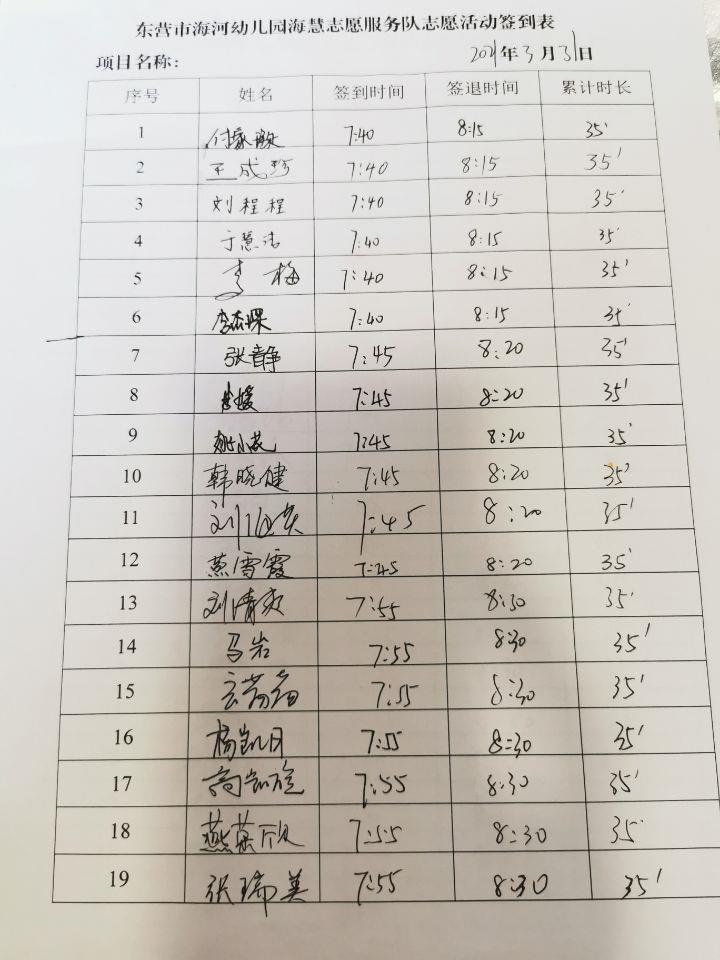 东营市海河幼儿园海慧志愿服务队志愿活动签到表
项目名称： 2021年3月31日
序号 姓名 签到时间 签退时间 累计时长
1 7:40 8:15 35'
2 王成玲 7:40 8:15 35'
3 刘程程 7:40 8:15 35'
4 于慧洁 7:40 8:15 35'
5 李梅 7:40 8:15 35'
6 7:40 8:15 35'
7 张静 7:45 8:20 35'
8 7:45 8:20 35'
9 7:45 8:20 35'
10 韩晓健 7:45 8:20 35'
11 7:45 8:20 35'
12 燕雪霞 7:45 8:20 35'
13 刘清爽 7:55 8:30 35'
14 马岩 7:55 8:30 35'
15 7:55 8:30 35'
16 杨凯月 7:55 8:30 35'
17 高凯旋 7:55 8:30 35'
18 燕慕欣 7:55 8:30 35'
19 张瑞美 7:55 8:30 35'